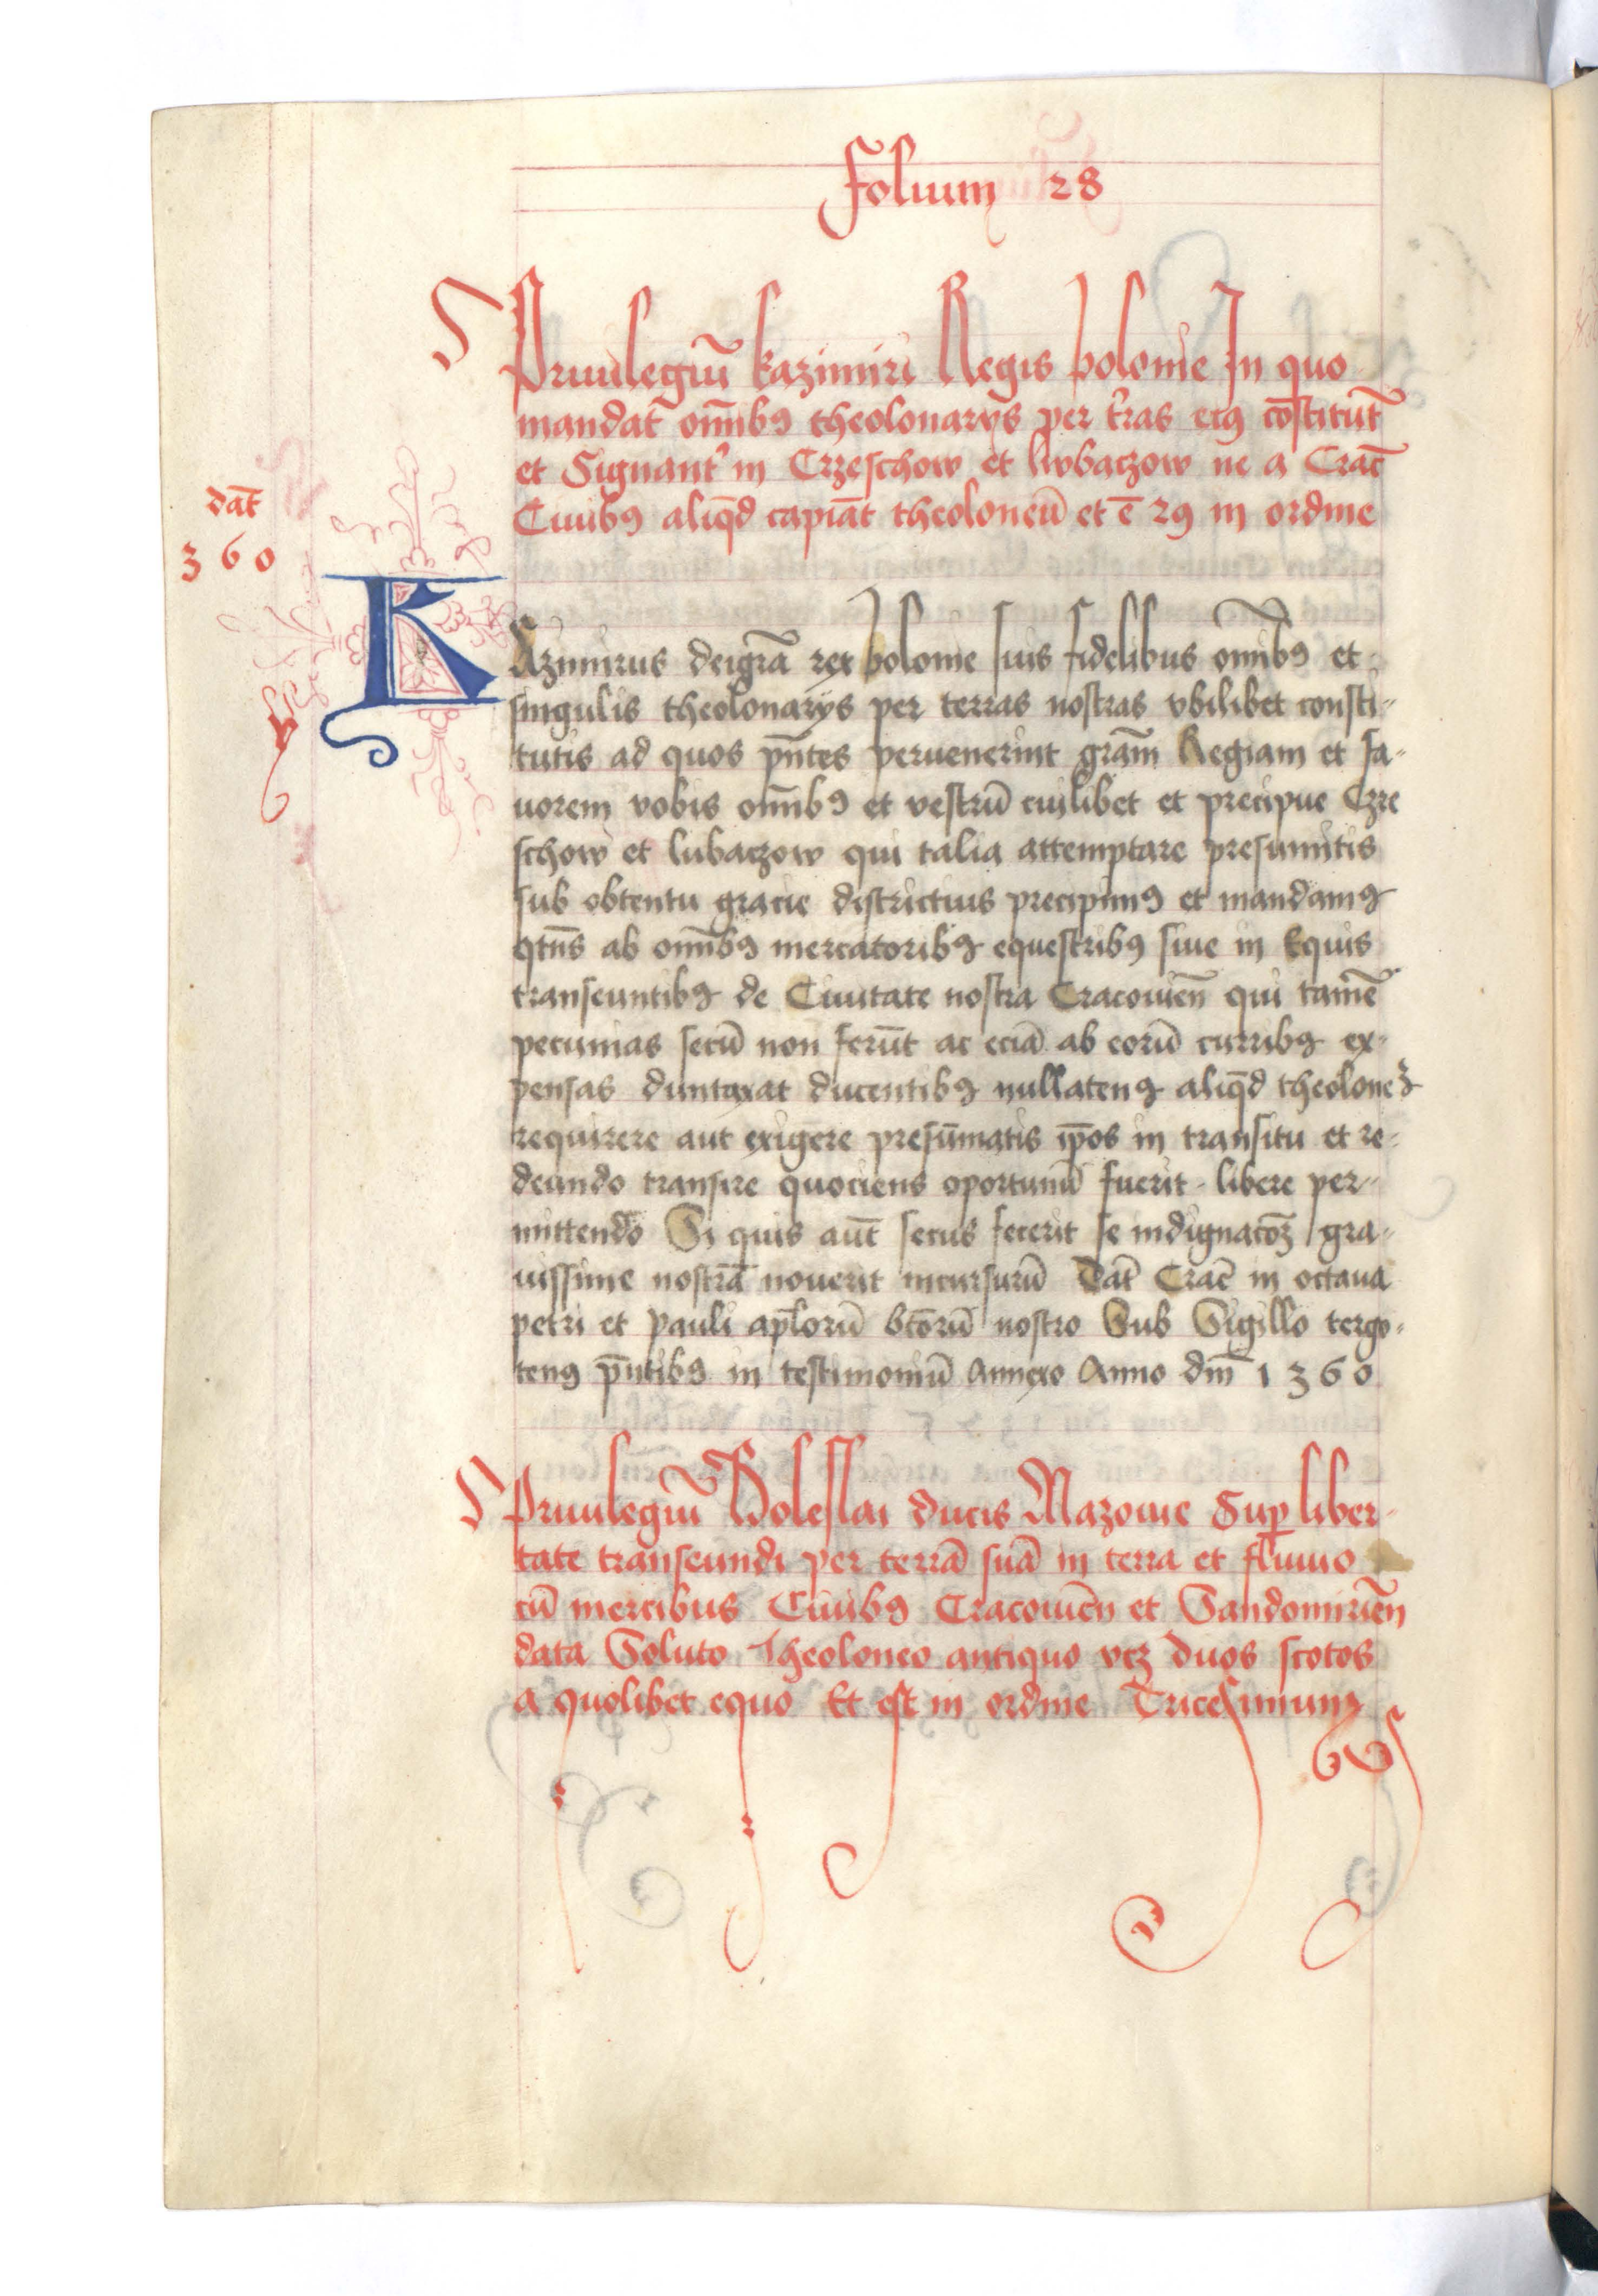 Folium 28
Priuilegiū kazimiri Regis polonie In quo
mandat̄ om̄ibꝯ theolonarijs per t̓ras eiꝯ cōstitut̄
et Signant̓ in Crzeschow et lwbaczow ne a Crac̄
Ciuibꝯ aliq̄d capiāt theoloneū et ē 29 in ordine
dat̄
360
KAzimirus deigrā rex polonie suis fidelibus om̄ibꝯ et
singulis theolonarijs per terras nostras vbilibet consti-
tutis ad quos pn̄tes peruenerint grām Regiam et fa-
uorem vobis om̄ibꝯ et vestrū cuilibet et precipue Czre
schow et lubaczow qui talia attemptare presumitis
sub obtentu gracie districtius precipimꝯ et mandamꝯ
qtn̄s ab om̄ibꝯ mercatoribꝯ equestribꝯ siue in Equis
transeuntibꝯ de Ciuitate nostra Cracouien̄ qui tamē
pecunias secū non ferūt ac eciā ab eorū curribꝯ ex-
pensas duntaxat ducentibꝯ nullatenꝯ aliq̄d theoloneꝫ
requirere aut exigere presūmatis ip̄os in transitu et re-
deundo transire quociens oportunū fuerit libere per-
mittendo Si quis aūt secus fecerit se indignacōꝫ gra-
uissime nostrā nouerit incursurū Dat̄ Crac̄ in octaua
petri et pauli ap̄lorū btōrū nostro Sub Sigillo tergo-
tenꝯ pn̄tibꝯ in testimoniū Annexo Anno dm̄ 1360
Priuilegiū Boleslai ducis Mazouie Suꝑ liber-
tate transeundi per terrā suā in terra et fluuio
cū mercibus Ciuibꝯ Cracouien̄ et Sandomirien̄
data Soluto Theoloneo antiquo vcꝫ duos scotos
a quolibet equo Et est in ordine Tricesimum